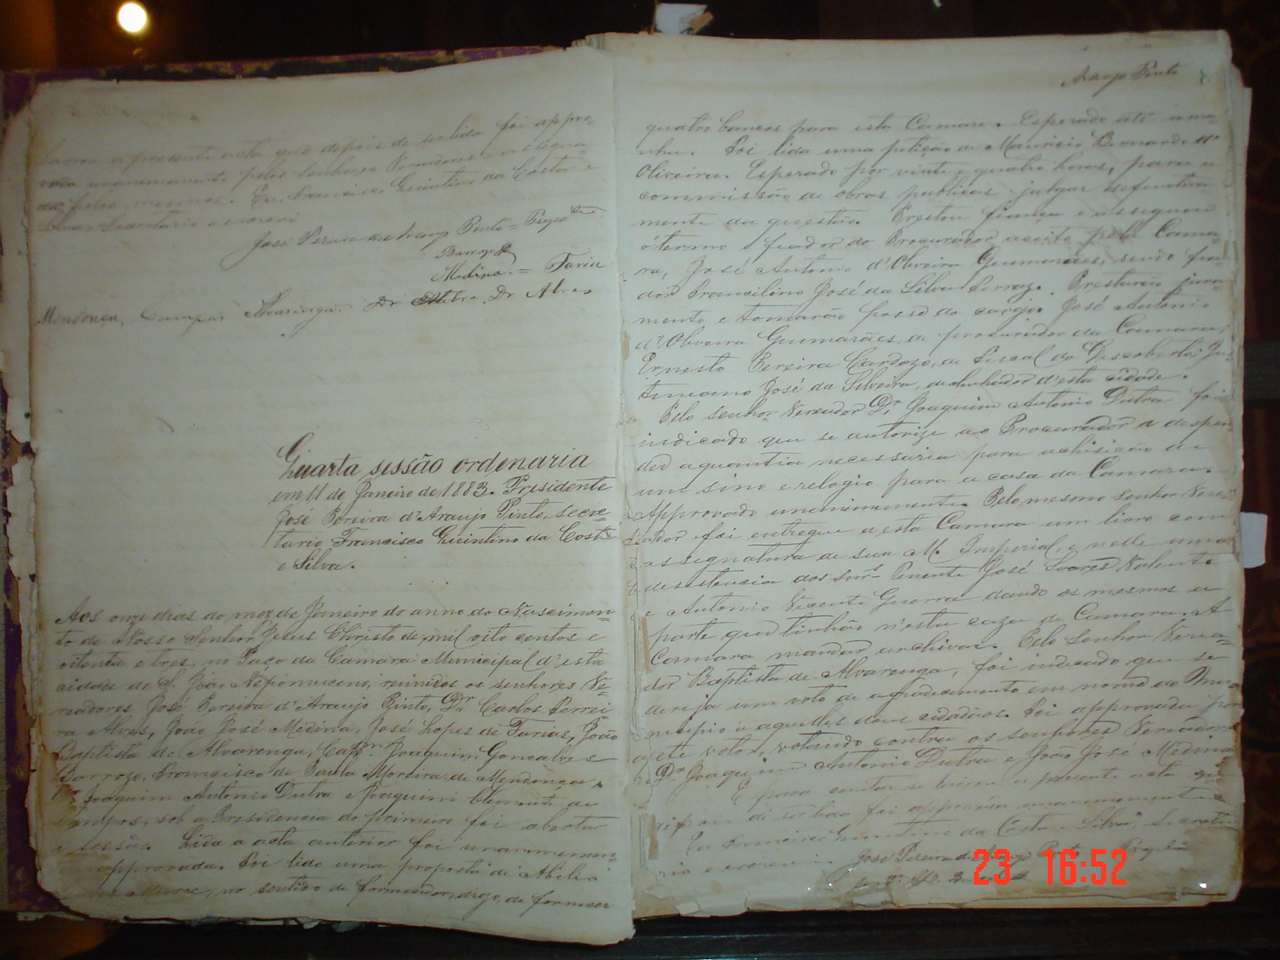 lavrou a presente acta que depois de ser lida foi appro-
vada unanimamente pelos Senhores Vereadores e assigna-
da pelos mesmos. Eu Francisco Quintino da Costa e
Silva, Secretario o escrevi
José Pereira de Araujo Pinto = Presid.te
Barroso
Medina = Faria
Mendonça, Campos, Alvarenga. Dr Dutra, Dr Alves
Quarta sessão ordenaria
em 11 de Janeiro de 1883. Presidente
José Pereira d'Araujo Pinto, secre-
tario Francisco Quintino da Costa
e Silva.
Aos onze dias do mez de Janeiro do anno do Nascimen-
to de Nosso Senhor Jesus Christo de mil oito centos e
oitenta e tres, no Paço da Camara Municipal d'esta
cidade de S. João Nepomuceno, reunidos os senhores Ve-
riadores José Pereira d'Araujo Pinto, Dr Carlos Ferrei-
ra Alves, João José Medina, José Lopes de Farias, João
Baptista de Alvarenga, Cap.m Joaquim Gonçalves
Barrozo, Francisco de Paula Moreira de Mendonca
Joaquim Antonio Dutra e Joaquim Clemente de
Campos, sob a Presidencia do primeiro foi aberta
a sessão. Lida a acta anterior foi unanimemen-
approvada. Foi lido uma proposta de
no sentido de formecedor, digo, de fornecer
Araujo Pinto 8
quatro bancos para esta Camara. Esperado até ama-
nha. Foi lida uma petição de Mauricio Bernardo d'
Oliveira. Esperado por vinte e quatro horas, para a
commissão de obras publicas julgar definitiva-
mente da questão. Prestou fiança e assignou
o termo o fiador do Procurador aceito pela Cama-
ra, José Antonio d'Oliveira Guimarães, sendo fia-
dor Francilino José da Silva Ferraz. Prestarão jura-
mento e tomarão posse do cargo. José Antonio
d'Oliveira Guimarães, de procurador da Camara;
Ernesto Pereira Cardozo, de Fiscal do Descoberto; Ju-
tiniano José da Silveira, de alinhador d'esta cidade.
Pelo Senhor Vereador Dr Joaquim Antonio Dutra foi
indicado que se autorize ao Procurador a despen-
der a quantia necessaria para achisição de
um sino e relogio para a casa da Camara.
Approvado unanimamente. Pelo mesmo senhor Verea-
dor foi entregue a esta Camara um livro com
assignatura de sua M. Imperial, e nelle uma
desistencia dos Snr.s Tenente José Soares Valente
e Antonio Vicente Guerra dando os mesmos a
parte que tinhão n'esta caza da Camara. A
Camara mandou archivar. Pelo Senhor Verea-
dor Baptista de Alvarenga, foi indicado que se
derija um voto de agradecimento em nome do Mu-
nicipio a aquelles dous cidadãos. Foi approvada por
sete votos, votando contra os senhores Vereadores
Dr Joaquim Antonio Dutra e João José Medina
E para constar se lavrou a presente acta que
depois de ser lida foi approvada unanimemente
Eu Francisco Quintino da Costa e Silva, Secreta-
rio o escrevi. José Pereira de Araujo Pinto
23 16:52